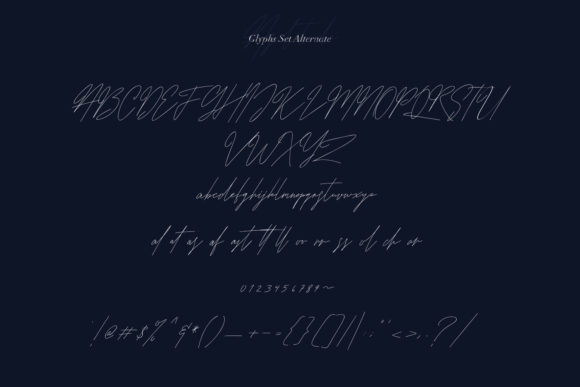 Glyphs Set Alternate
ABCDEFGHIJKLMNOPQRSTU
VWXYZ
abcdefghijklmnopqrstuvwxyz
al at as af ast tt ll or on ss ol ch an
0123456789~
!@#$%^&*()_+-={}[]|/:;"'<>,.?/